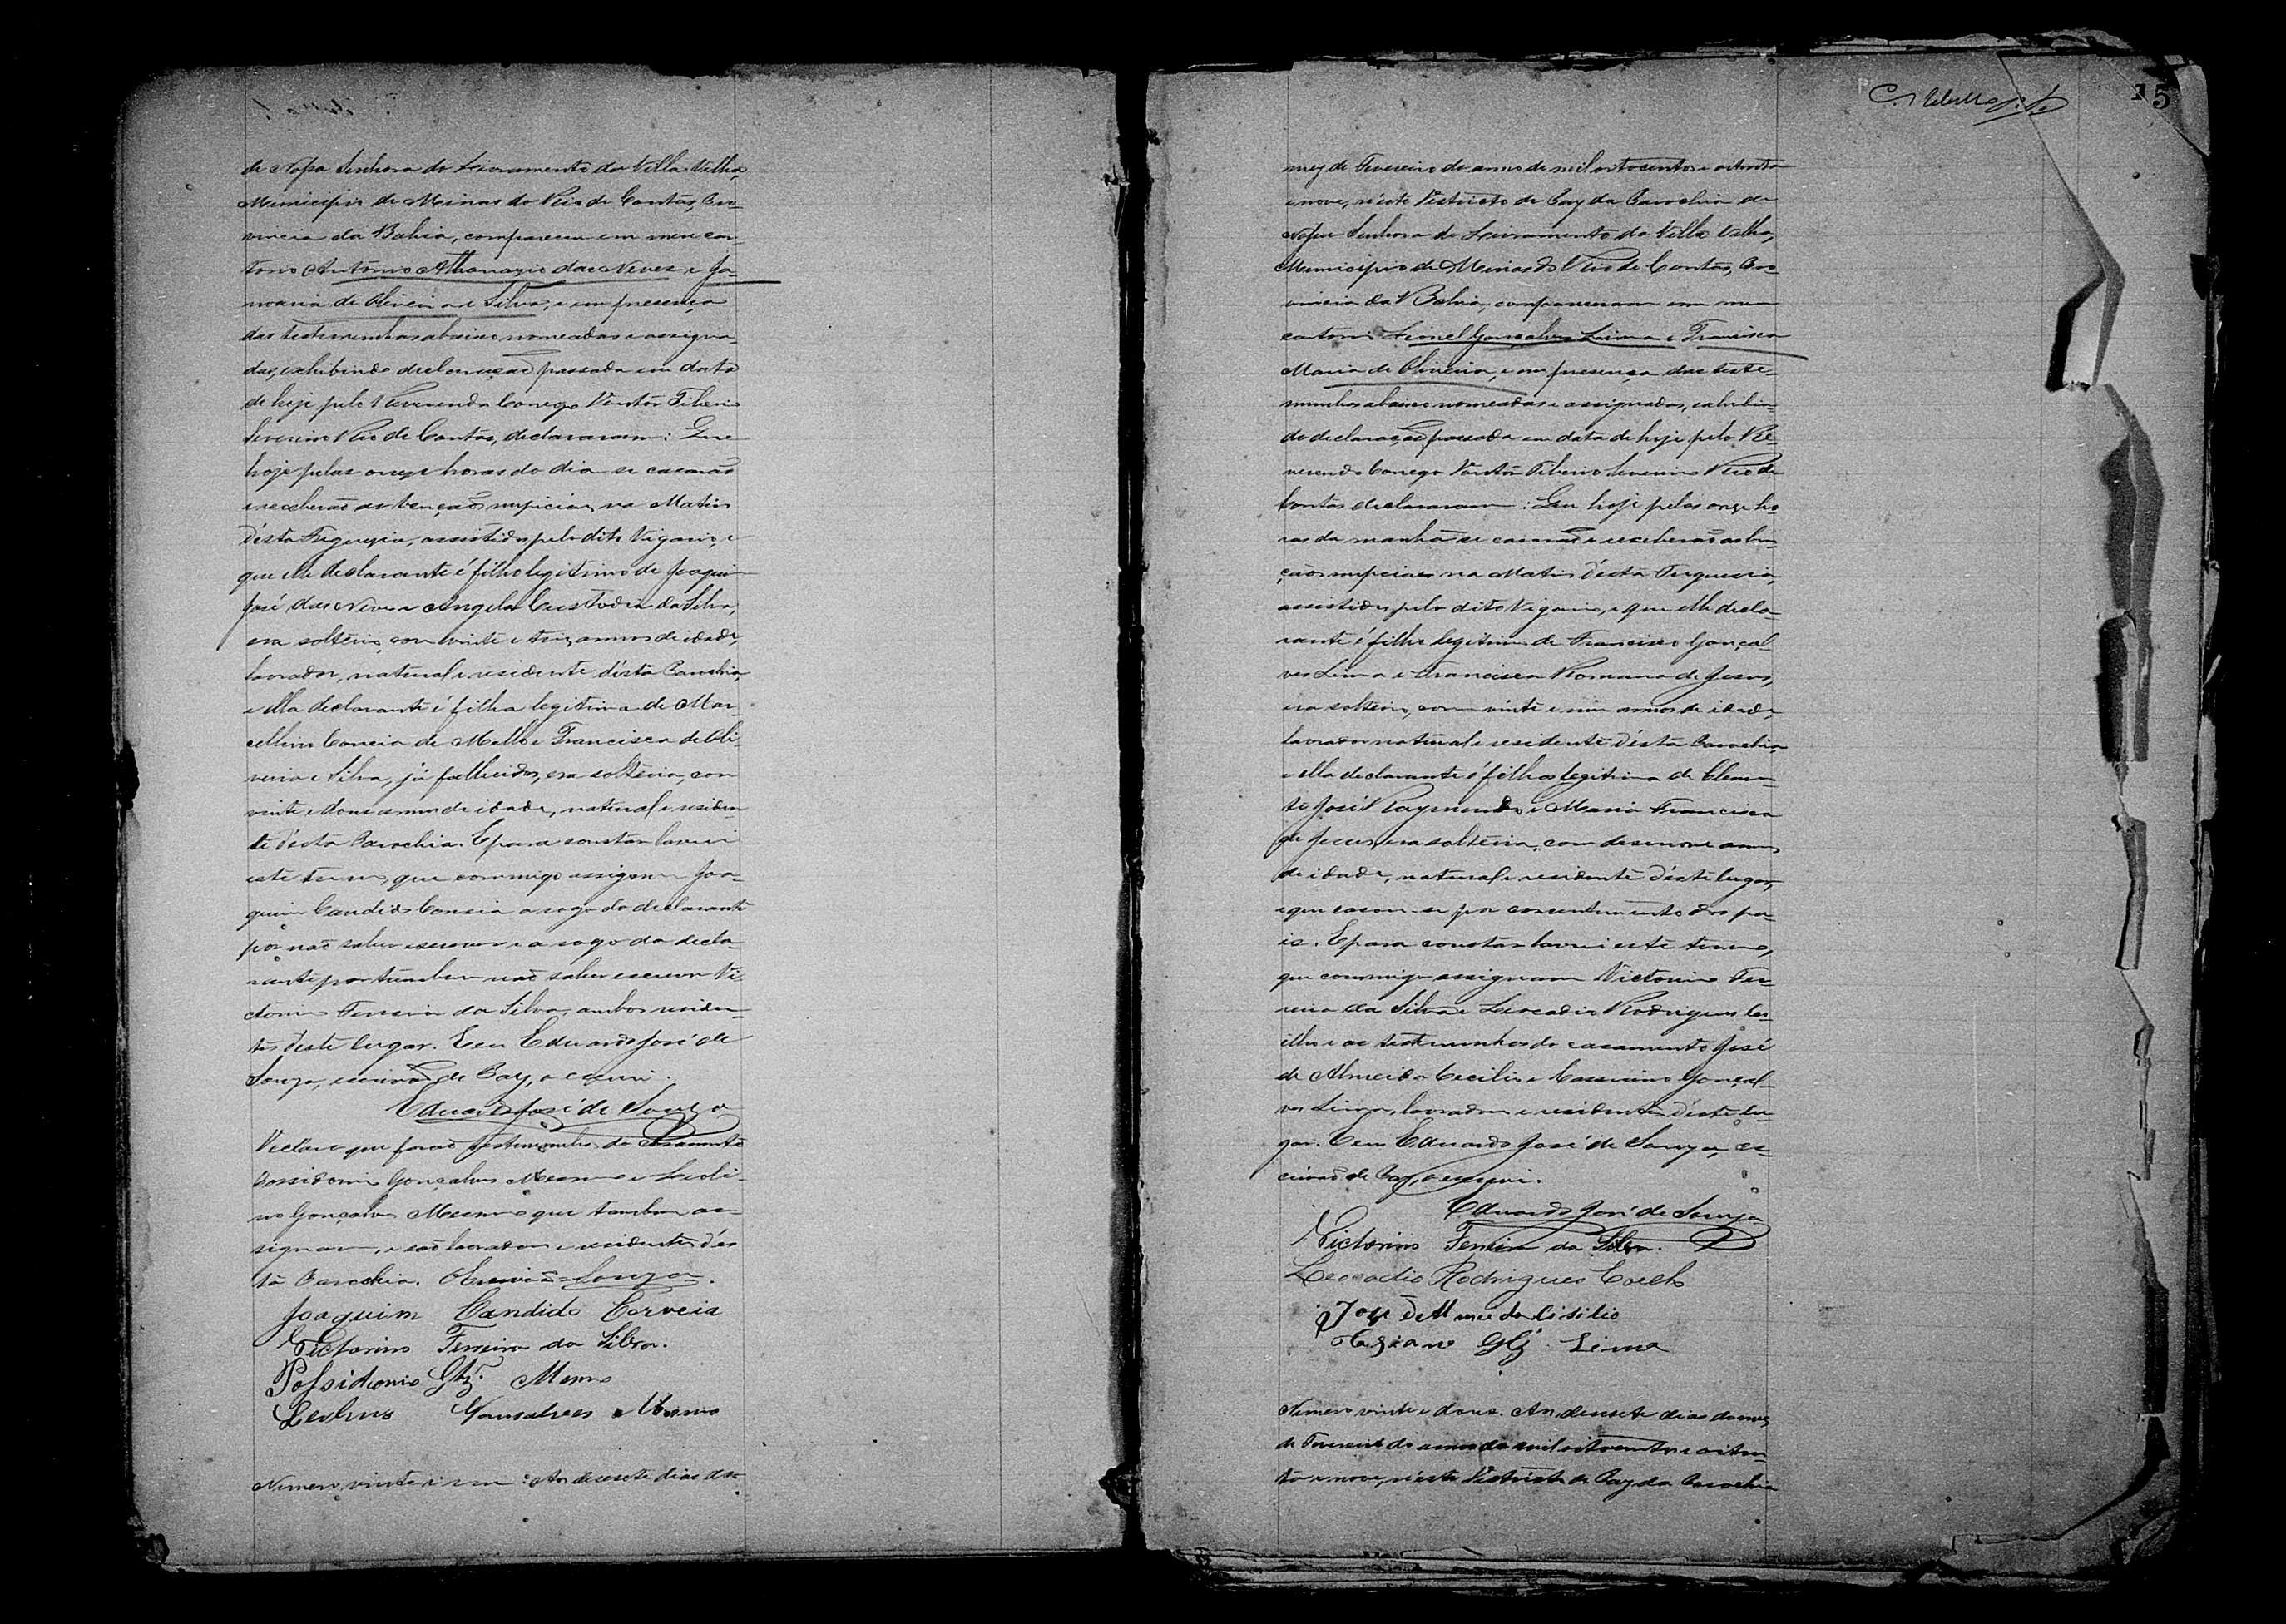 de Nossa Senhora do Livramento da Villa Velha,
Municipio de Minas do Rio de Contas, Pro-
vincia da Bahia, compareceu em meu car-
torio Antonio Athanazio das Neves e Ja-
nuaria de Oliveira e Silva, e em presença
das testemunhas abaixo nomeadas e assigna-
das, exhibindo declaração passada em data
de hoje pelo Reverendo Conego Doutor Tiberio
Severino Rio de Contas, declararam: Que
hoje pelas onze horas do dia se casarão
e receberão as bençãos nupciaes na Matriz
d'esta Freguezia, assistidos pelo dito Vigario, e
que elle declarante é filho legitimo de Joaquim
José das Neves e Angela Custodia da Silva,
era solteiro, com vinte e trez annos de idade,
lavrador, natural e residente d'esta Parochia,
e ella declarante é filha legitima de Mar-
cellino Correia de Mello e Francisca de Oli-
veira e Silva, já fallecidos, era solteira, com
vinte e dous annos de idade, natural e residen-
te d'esta Parochia. E para constar lavrei
este termo, que commigo assignam Joa-
quim Candido Correia a rogo do declarante
por não saber escrever e a rogo da decla-
rante por tambem não saber escrever Vi-
ctorino Ferreira da Silva, ambos residen-
tes d'este lugar. E eu Eduardo José de
Souza, escrivão de Paz, o escrevi.
Eduardo José de Souza
Declaro que forão testemunhas do casamento
Possidonio Gonçalves Meswho e Leoli-
no Gonçalves que tambem as-
signam, e são lavradores e residentes d'es-
ta Parochia. O Escrivão Souza.
Joaquim Candido Correia
Victorino Ferreira da Silva.
Possidonio Glz.
Leolino Gonsalves
Numero vinte e um: Aos desesete dias do
C. Rebello
15
mez de Fevereiro do anno de mil oitocentos e oitenta
e nove, n'este Districto de Paz da Parochia de
Nossa Senhora do Livramento da Villa Velha,
Municipio de Minas do Rio de Contas, Pro-
vincia da Bahia, compareceram em meu
cartorio Leonel Gonçalves Lima e Francisca
Maria de Oliveira, e em presença das teste-
munhas abaixo nomeadas e assignadas, exhibin-
do declaração passada em data de hoje pelo Re-
verendo Conego Doutor Tiberio Severino Rio de
Contas declararam: Que hoje pelas onze ho-
ras da manhã se casarão e receberão as ben-
çãos nupciaes na Matriz d'esta Freguezia,
assistidos pelo dito Vigario, e que elle decla-
rante é filho legitimo de Francisco Gonçal-
ves Lima e Francisca Romana de Jesus,
era solteiro, com vinte e um annos de idade,
lavrador natural e residente d'esta Parochia
e ella declarante é filha legitima de Clemen-
te José Raymundo e Maria Francisca
de Jesus, era solteira, com desenove annos
de idade, natural e residente d'este lugar,
e que casou-se por consentimento dos pa-
is. E para constar lavrei este termo,
que commigo assignam Victorino Fer-
reira da Silva e Leocadio Rodrigues Co-
elho e as testemunhas do casamento José
de Almeida Cecilio e Cassiano Gonçal-
ves Lima, lavradores e residentes d'este lu-
gar. E eu Eduardo José de Souza, es-
crivão de Paz, o escrevi.
Eduardo José de Souza
Victorino Ferreira da Silva.
Leocadio Rodrigues Coelho
Joze de Almeida Cisilio
Caziano Glz. Lima
Numero vinte e dous. Aos desesete dias do mez
de Fevereiro do anno de mil oitocentos e oiten-
ta e nove, n'este Districto de Paz da Parochia